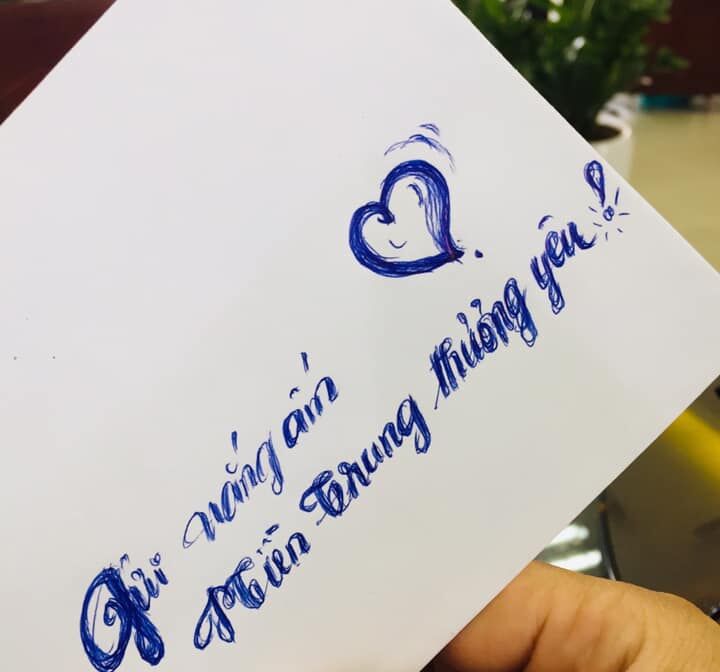 Gửi nắng ấm
Miền Trung thương yêu!